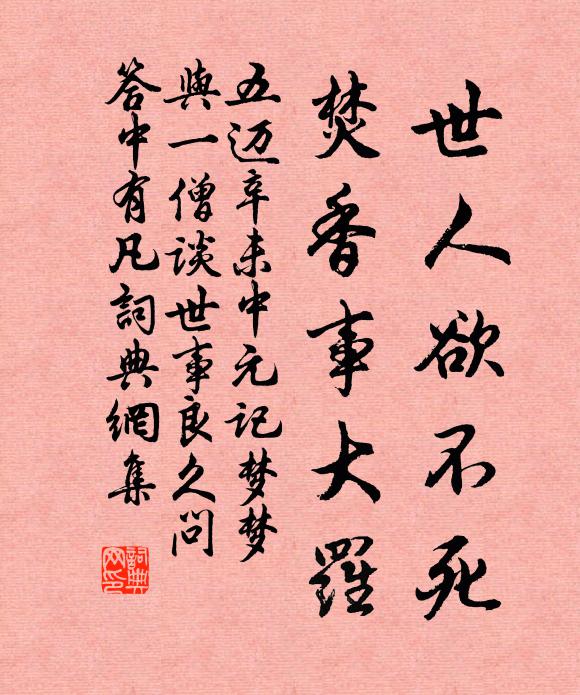 世人欲不死
焚香事大羅
五迈辛未中元记梦梦
與一僧谈世事良久问
答中有凡詞典網集
詞典网印